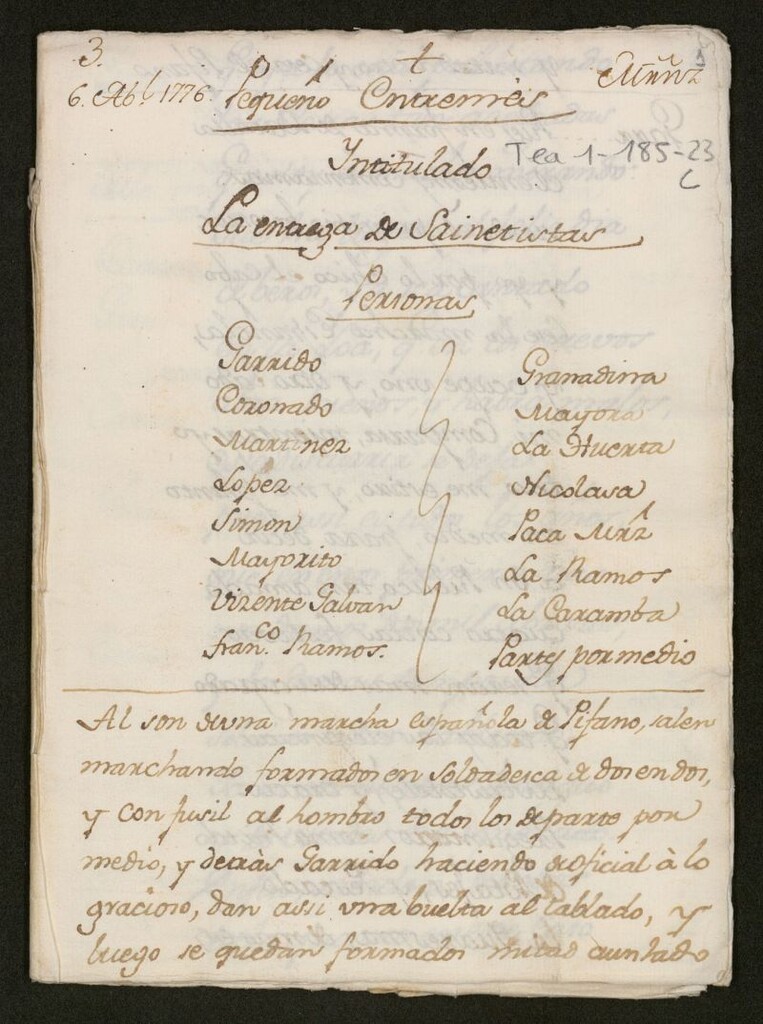 3. +
6. Abl. 1776. Pequeño Entremès
Intitulado Tea 1-185-23
C
La entrega de Sainetistas
Personas
Garrido
Coronado
Martinez
Lopez
Simon
Mayorito
Vizente Galvan
Fran.co Ramos.
Granadina
Mayora
La Huerta
Nicolasa
Paca Mrz
La Ramos
La Caramba
Partes por medio
Al son de una marcha española de Pifano, salen
marchando formados en soldadesca de dos en dos,
y con fusil al hombro todos los de parte por
medio, y detràs Garrido haciendo de oficial à lo
gracioso, dan assi una buelta al tablado, y
luego se quedan formados mitad aun lado